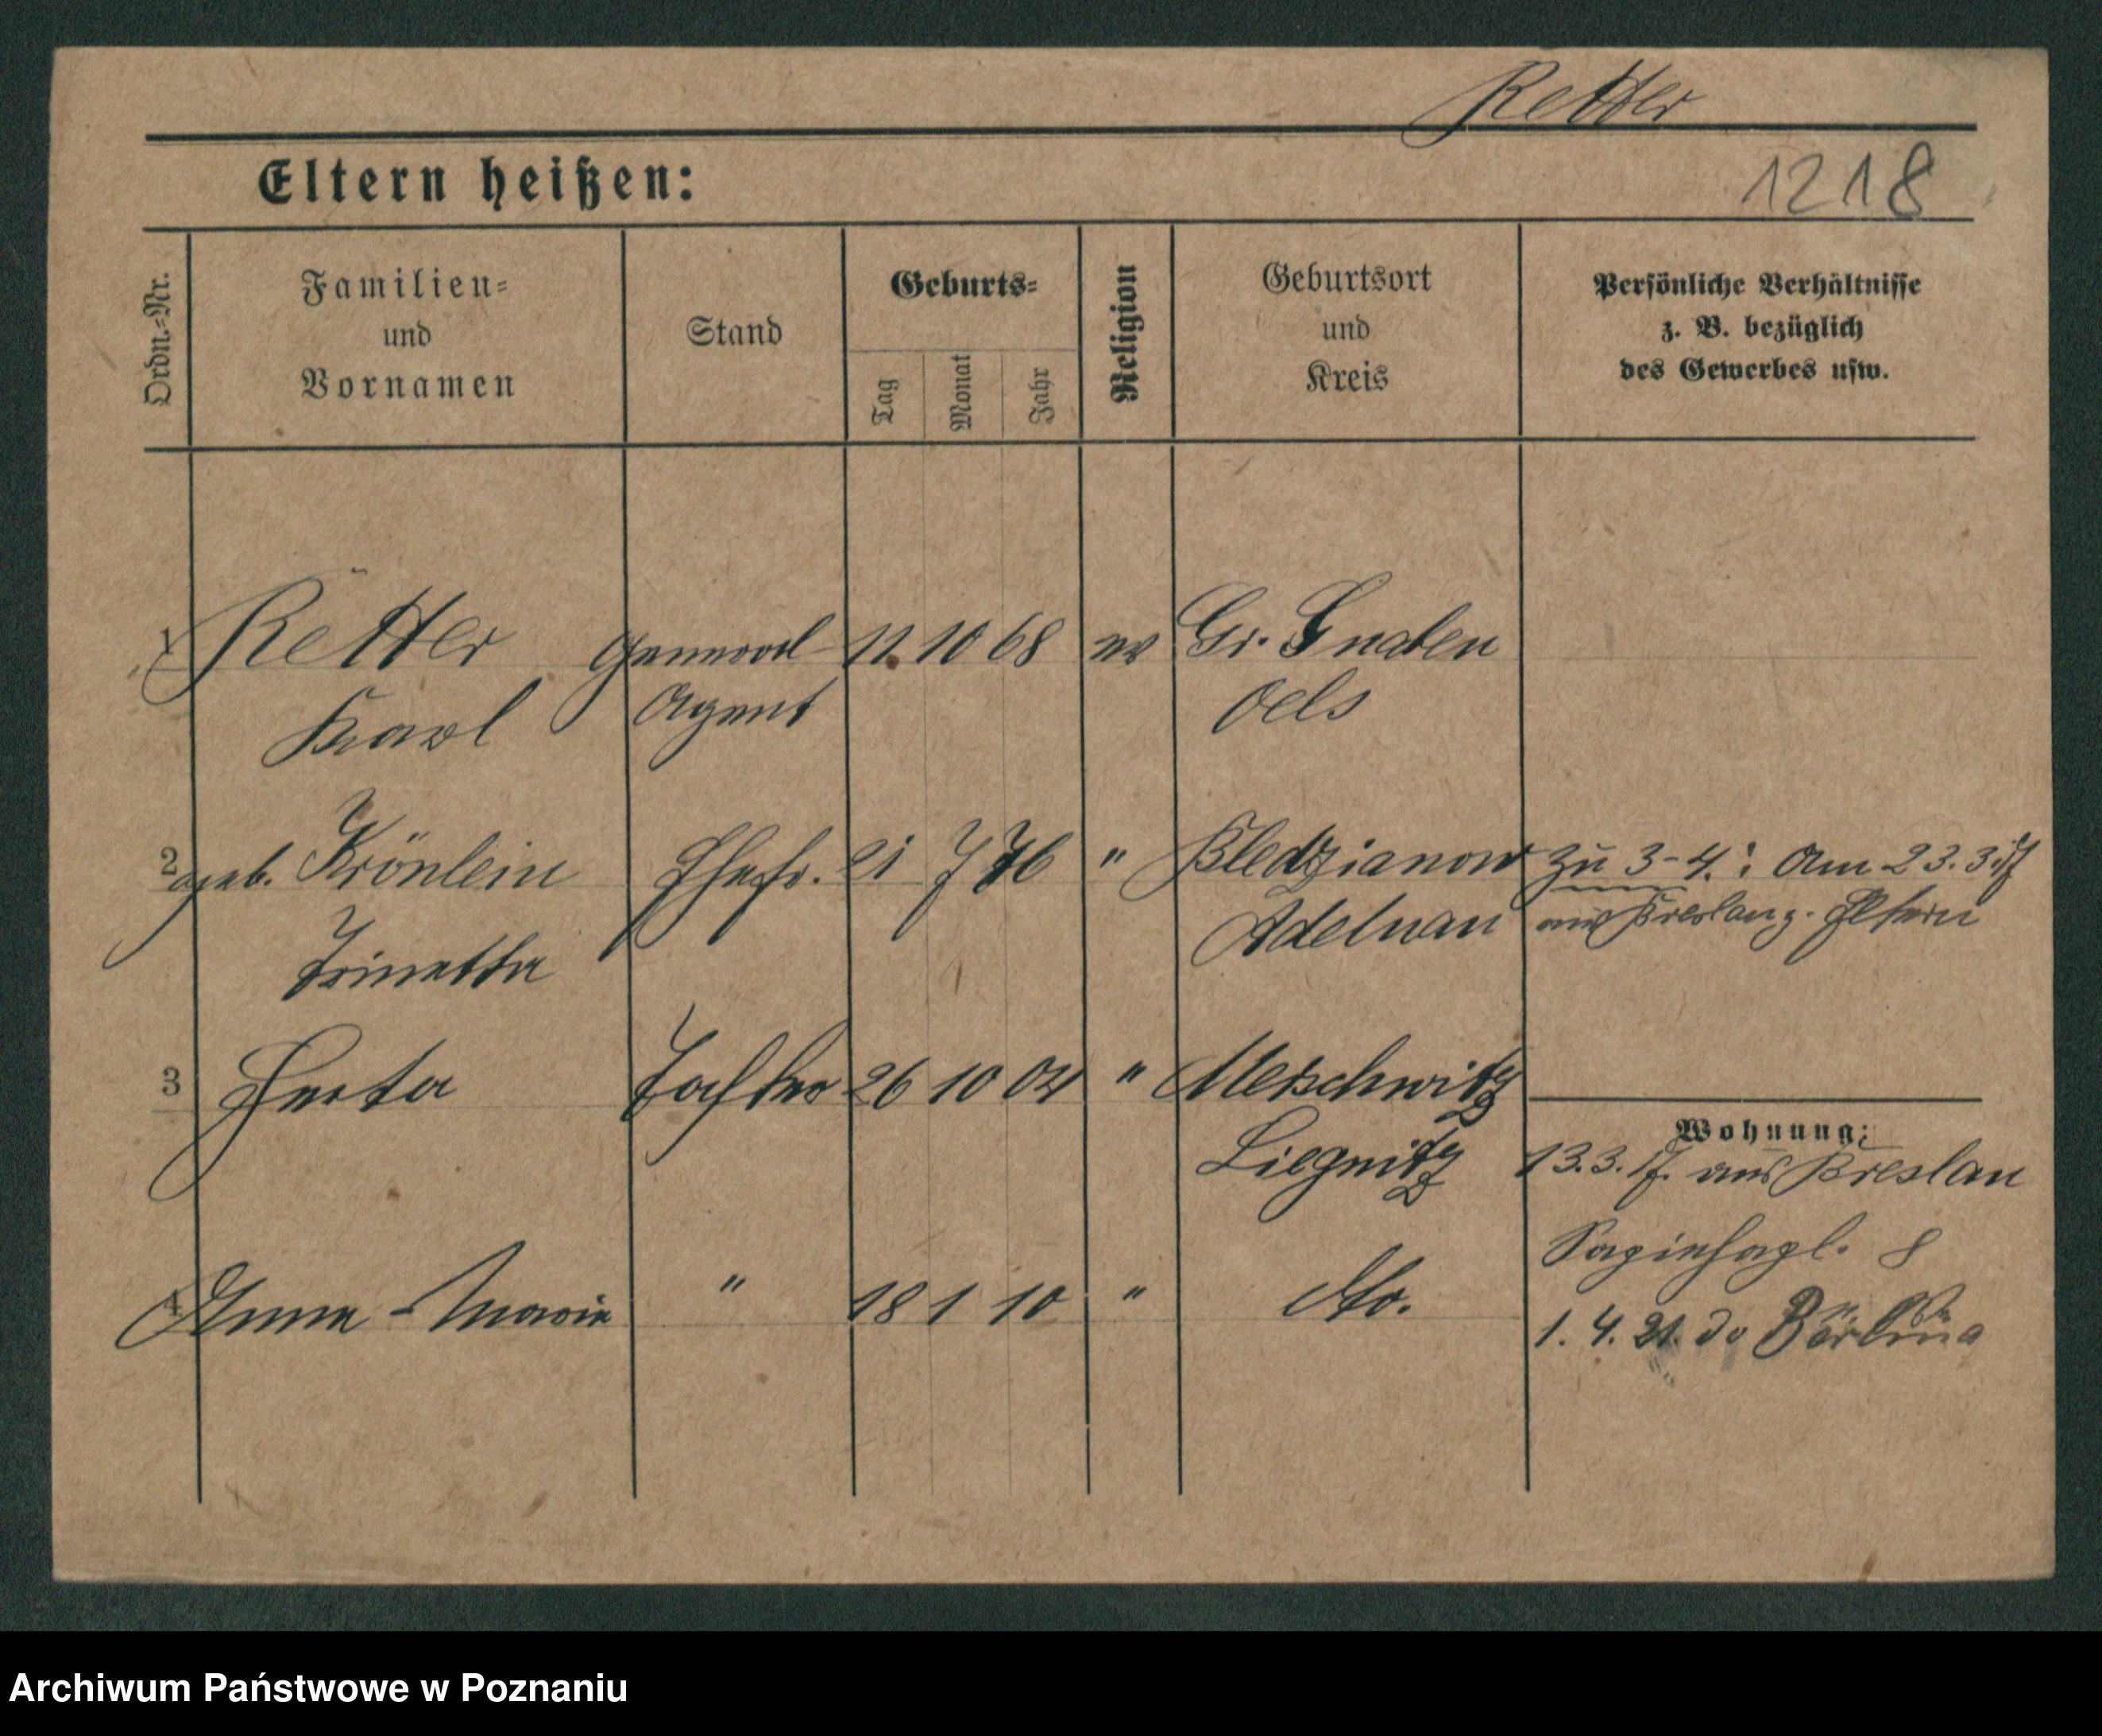 Retter
Eltern heißen:
1218
Ordn.=Nr.
Familien=
und
Vornamen
Stand
Geburts=
Tag
Monat
Jahr
Religion
Geburtsort
und
Kreis
Persönliche Verhältnisse
z. B. bezüglich
des Gewerbes usw.
1 Retter General- 11. 10 68 ev Gr. Graben
Karl Agent Oels
2 geb. Krönlein Ehefr. 21 7 76 " Bledzianow zu 3-4.: Am 23.3.17
Adelnau aus Breslau z. Eltern
3 Herta Tochter 26 10 04 " Merschwitz
Wohnung:
Liegnitz 13.3.17. aus Breslau
8
4 Anna-Marie " 18 1 10 " dto.
1. 4. 21. do Berlina
Archiwum Państwowe w Poznaniu